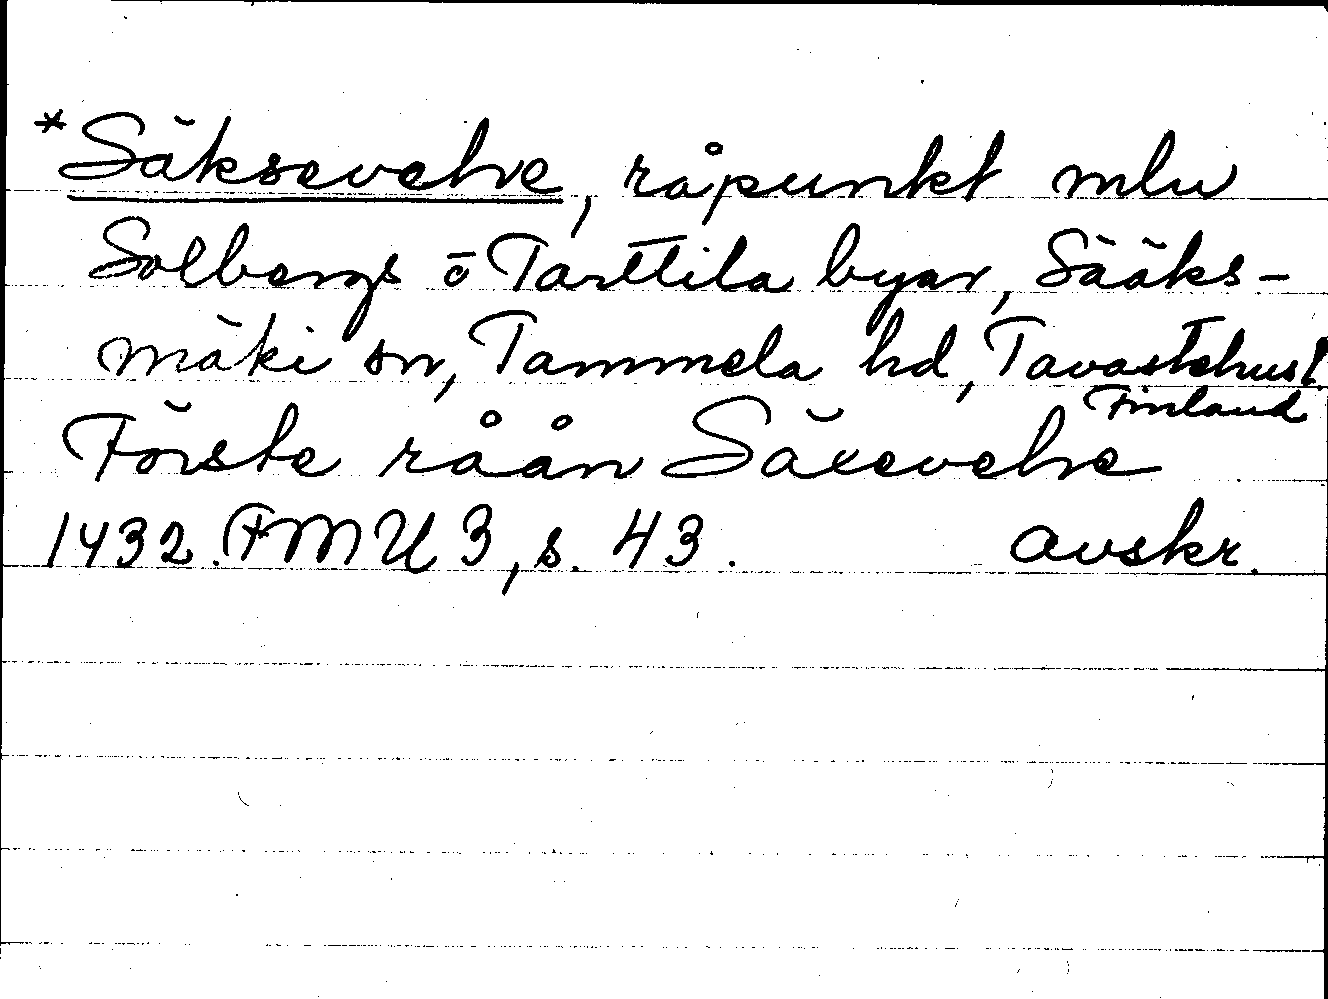 *Säksevehe, råpunkt mlu
Solbergs ō Tarttila byar, Sääks-
mäki sn, Tammela hd, Tavastehus l.
Finland
Förste råån Säxevehe
1432. FMU 3, s. 43. avskr.